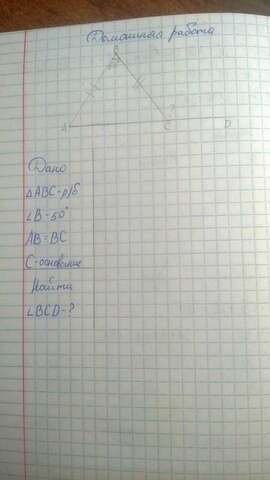 Домашняя работа
B
A
C
D
Дано
△ABC-р/б
∠B-50°
AB=BC
C-основание
Найти
∠BCD-?